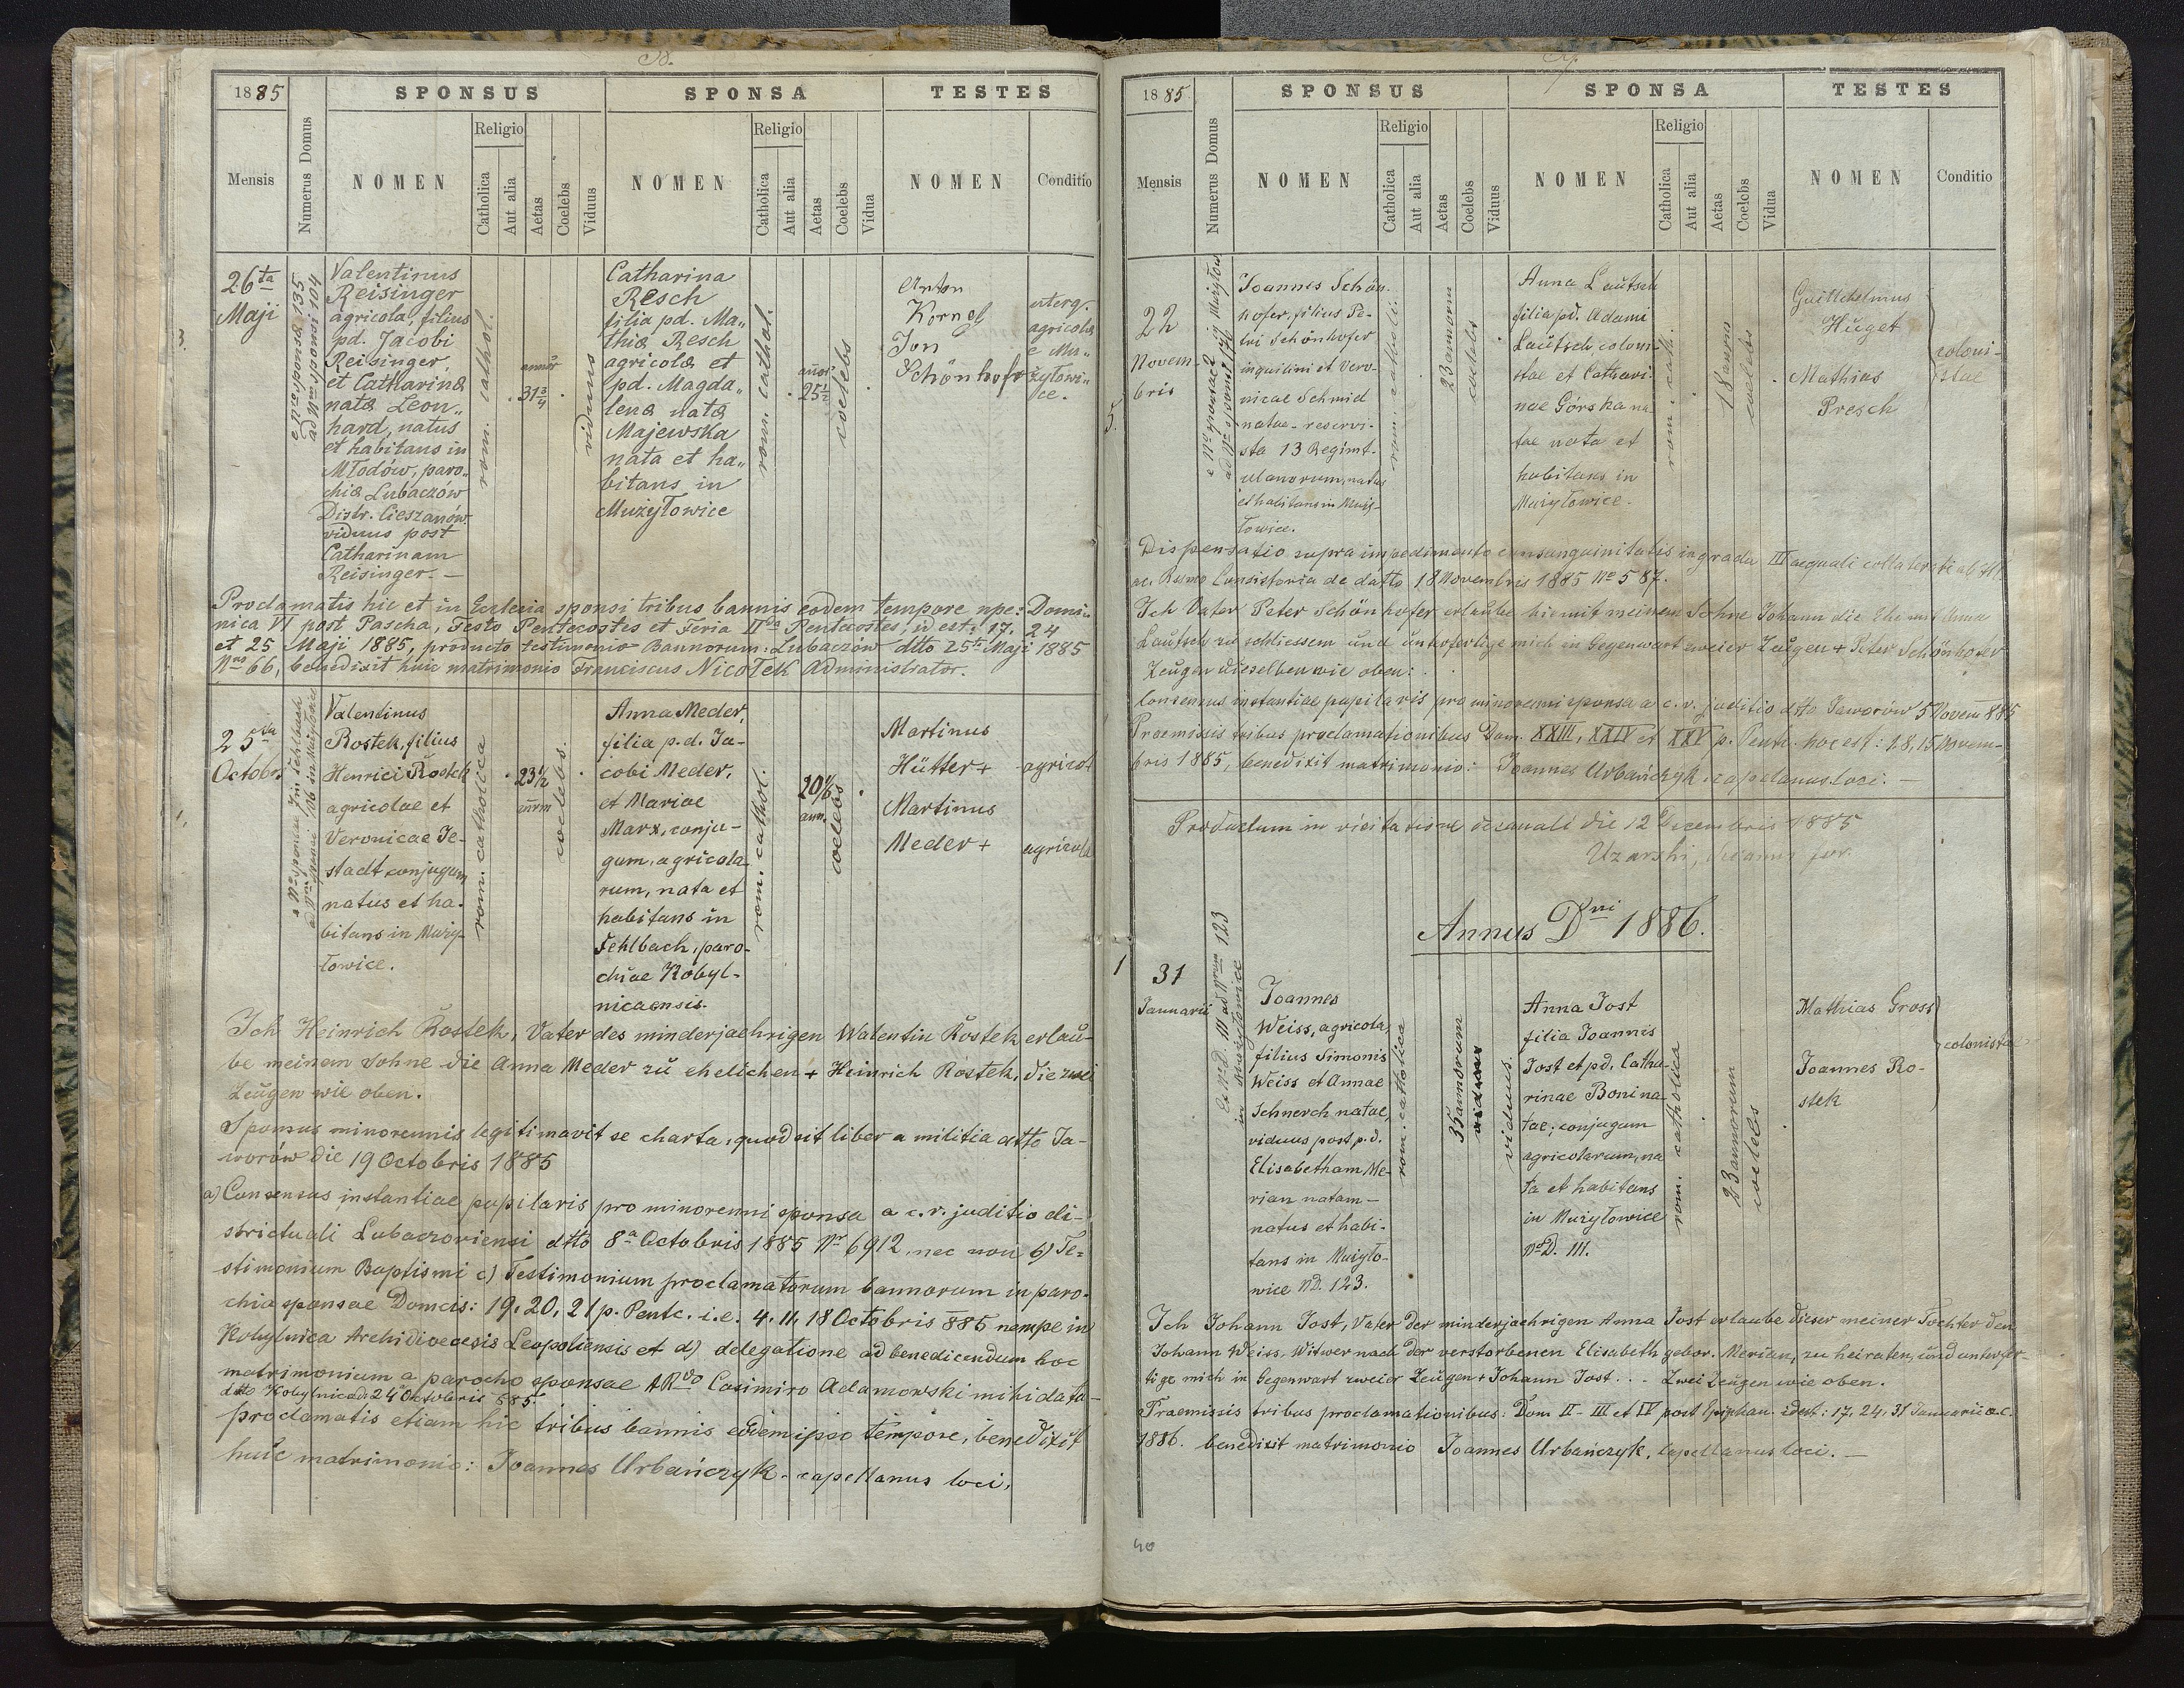 8.
1885
SPONSUS
SPONSA
TESTES
Mensis
Numerus Domus
NOMEN
Religio
Catholica
Aut alia
Aetas
Coelebs
Viduus
NOMEN
Religio
Catholica
Aut alia
Aetas
Coelebs
Vidua
NOMEN
Conditio
3.
26ta
Maji
e Nro sponsæ 135
ad Nrum sponsi 104
Valentinus
Reisinger
agricola, filius
pd. Jacobi
Reisinger,
et Catharinæ
natæ Leon„
hard, natus
et habitans in
Młodów, paro„
chiæ Lubaczów
Distr. Cieszanów
viduus post
Catharinam
Reisinger. —
rom. cathol.
annor
31 3/4
viduus
Catharina
Resch
filia pd. Ma„
thiæ Resch
agricolæ et
pd. Magda„
lenæ natæ
Majewska
nata et ha„
bitans in
Mużyłowice
rom. cathol.
annor
25 1/2
coelebs
Anton
Kornel
Jon
Schönhofr
uterq.
agricolæ
e Mu„
żyłowi„
ce.
Proclamatis hic et in Ecclesia sponsi tribus bannis eodem tempore npe: Domi„
nica VI post Pascha, Festo Pentecostes et Feria IIda Pentecostes, id est: 17. 24
et 25 Maji 1885, producto testimonio Bannorum: Lubaczów dtto 25ta Maji 1885
Nro 66, benedixit huic matrimonio Franciscus Nicołek Administrator.
4.
25ta
Octobr.
a No sponsae 7 in Fehlbach
ad Nrum sponsi 106 in Mużyłowice
Valentinus
Rostek, filius
Henrici Rostek
agricolae et
Veronicae Je-
stadt conjugum
natus et ha-
bitans in Muży-
łowice.
rom. catholica
23 1/2
annrm
coelebs.
Anna Meder,
filia p.d. Ja-
cobi Meder,
et Mariae
Marx, conju-
gum, agricola
rum, nata et
habitans in
Fehlbach, paro-
chiae Kobyl-
nicaensis.
rom. cathol.
20 1/6
ann.
coelebs
Martinus
Hütter +
Martinus
Meder +
agricol
agricola
Ich Heinrich Rostek, Vater des minderjaehrigen Walentin Rostek erlau-
be meinem Sohne die Anna Meder zu ehelichen + Heinrich Rostek, die zwei
Zeugen wie oben.
Sponsus minorennis legitimavit se charta, quod sit liber a militia dtto Ja-
worów die 19 Octobris 1885
a) Consensus instantiae pupilaris pro minorenni sponsa a c.r. juditio di-
strictuali Lubaczoviensi dtto 8a Octobris 1885 Nr 6912, nec non b) Te-
stimonium Baptismi c) Testimonium proclamatorum bannorum in paro-
chia sponsae Domcis: 19, 20, 21 p. Pentc. i.e. 4. 11, 18 Octobris 885 nempe in
Kobylnica Archidioecesis Leopoliensis et d) delegatione ad benedicendum hoc
matrimonium a parocho sponsae ARdo Casimiro Adamowski mihi data —
dtto Kobylnica d. 24 Oktobris 885.
proclamatis etiam hic tribus bannis eodem ipso tempore, benedixit
huic matrimonio: Joannes Urbańczyk - capellanus loci,
9.
1885
SPONSUS
SPONSA
TESTES
Mensis
Numerus Domus
NOMEN
Religio
Catholica
Aut alia
Aetas
Coelebs
Viduus
NOMEN
Religio
Catholica
Aut alia
Aetas
Coelebs
Vidua
NOMEN
Conditio
5.
22
Novem-
bris
Joannes Schön-
hofer, filius Pe-
tri Schönhofer
inquilini et Vero-
nicae Schmid
natae - reservi-
sta 13 Regimt.
ulanorum, natus
et habitans in Muży-
łowice.
rom catholi.
23 annorum
coelebs
Anna Lautsch
filia pd. Adami
Lautsch coloni-
stae et Cathari-
nae Górska na
tae nata et
habitans in
Mużyłowice.
rom. cath.
18 annor
coelebs
Guilhelmus
Huget
Mathias
Presch
coloni-
stae
Dispensatio supra impedimento consanguinitatis in gradu III aequali collaterali ab Ill.
ac. Rssmo Consistorio de datto 18 Novembris 1885 No 587.
Ich Vater Peter Schönhofer erlaube hiemit meinem Sohne Johann die Ehe mit Anna
Lautsch zu schliessen und unterfertige mich in Gegenwart zweier Zeugen + Peter Schönhofer
Zeugen dieselben wie oben:
Consensus instantiae pupilaris pro minorenni sponsa a c.r. juditio dtto Jaworów 5 Novem 885
Praemissis tribus proclamationibus Dom. XXIII, XXIV et XXV p. Pentc. hoc est: 1.8,15 Novem-
bris 1885, benedixit matrimonio: Joannes Urbańczyk capellanus loci. —
Productum in visitatione decanali die 12 Decembris 1885
Uzarski, decanus for.
Annus Dni 1886.
1
31
Januarii
Ex No D. 111 ad Nrum 123
in Mużyłowice
Joannes
Weiss, agricola,
filius Simonis
Weiss et Annae
Schnerch natae,
viduus post p.d.
Elisabetham Me-
rian natam —
natus et habi-
tans in Mużyło-
wice ND. 123.
rom. catholica
35 annorum
viduus.
Anna Jost
filia Joannis
Jost et pd. Catha
rinae Boni na
tae, conjugum
agricolarum, na
ta et habitans
in Mużyłowice
NoD. 111.
rom. catholica
23 annorum
coelebs
Mathias Gross
Joannes Ro-
stek
colonistae
Ich Johann Jost, Vater der minderjaehrigen Anna Jost erlaube dieser meiner Tochter den
Johann Weiss, Witwer nach der verstorbenen Elisabeth gebor. Merian, zu heiraten, und unterfer-
tige mich in Gegenwart zweier Zeugen + Johann Jost . . - Zwei Zeugen wie oben.
Praemissis tribus proclamationibus: Dom II - III et IV post Epiphan. idest: 17, 24, 31 Januarii a.c.
1886. benedixit matrimonio Joannes Urbańczyk, Capellanus loci. —
40